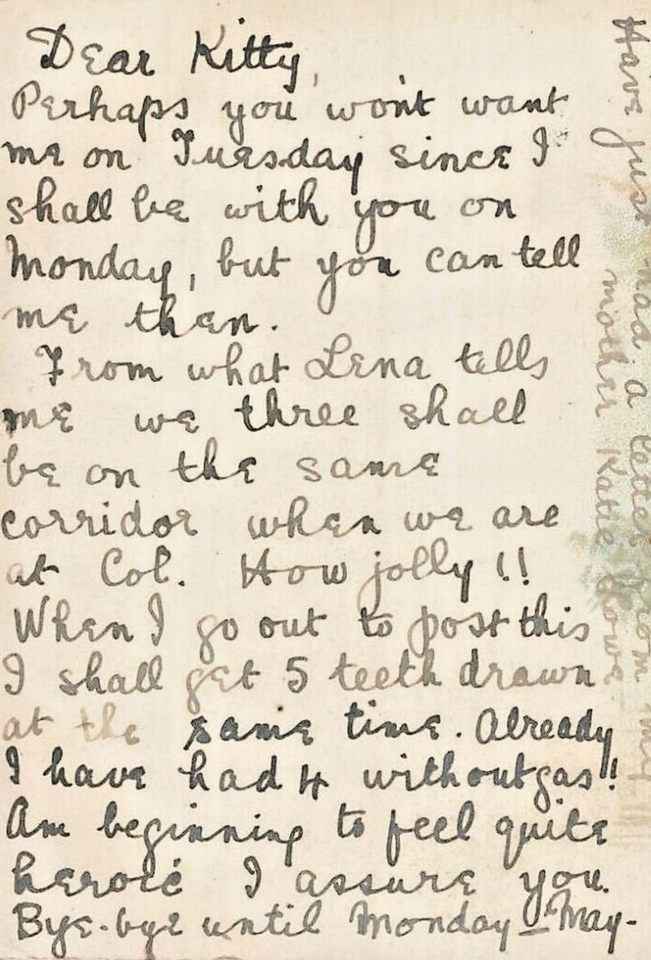 Dear Kitty,
Perhaps you won't want
me on Tuesday since I
shall be with you on
Monday, but you can tell
me then.
From what Lena tells
me we three shall
be on the same
corridor when we are
at Col. How jolly!!
When I go out to post this
I shall get 5 teeth drawn
at the same time. Already
I have had 4 without gas!
Am beginning to feel quite
heroic I assure you.
Bye-bye until Monday – May-
Have just had a letter from my
mother Katie